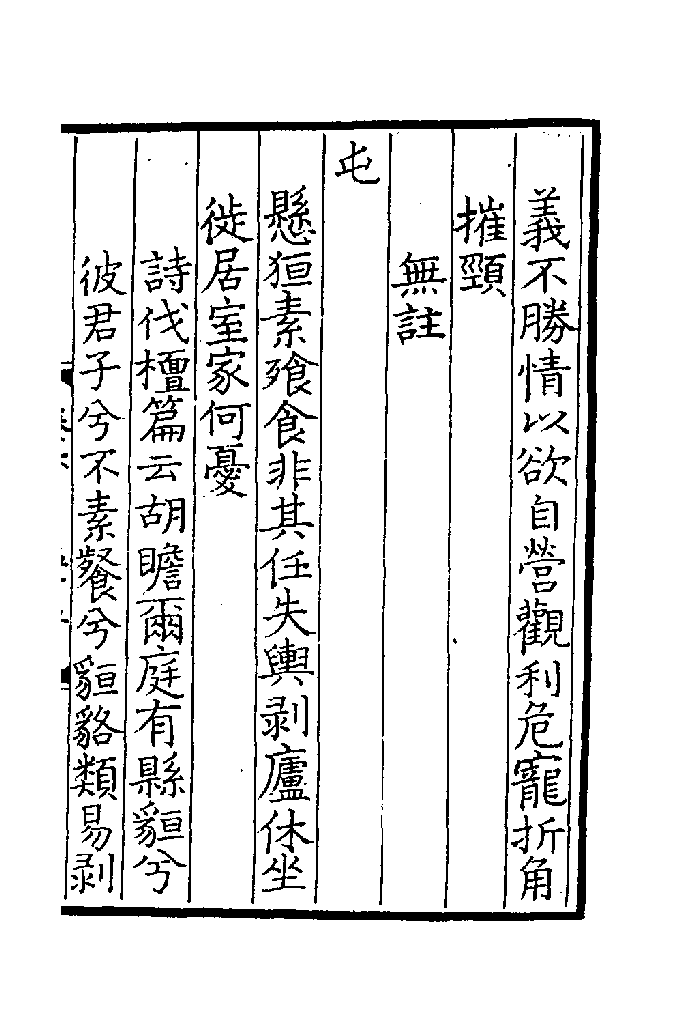 義不勝情以欲自營觀利危寵折角
摧頸
無註
屯
懸狟素飱食非其任失輿剥廬休坐
徙居室家何憂
詩伐檀篇云胡瞻爾庭有縣貆兮
彼君子兮不素餐兮貆貉類易剥